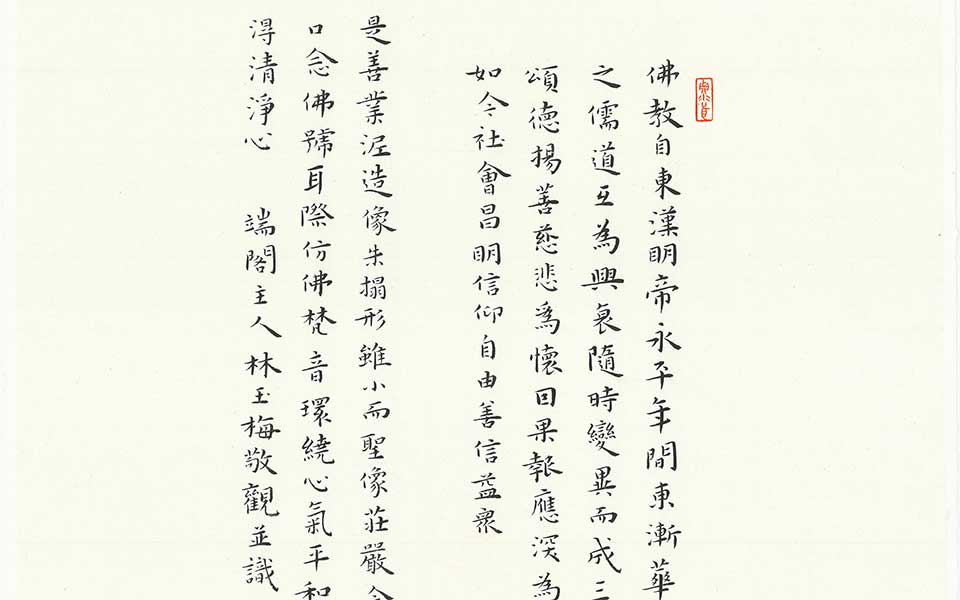 佛教自東漢明帝永平年間東漸華
之儒道互為興衰隨時變異而成三
頌德揚善慈悲為懷因果報應深為
如今社會昌明信仰自由善信益眾
是善業泥造像朱搨形雖小而聖像莊嚴令
口念佛號耳際仿佛梵音環繞心氣平和
淂清淨心 端閣主人林玉梅敬觀並識